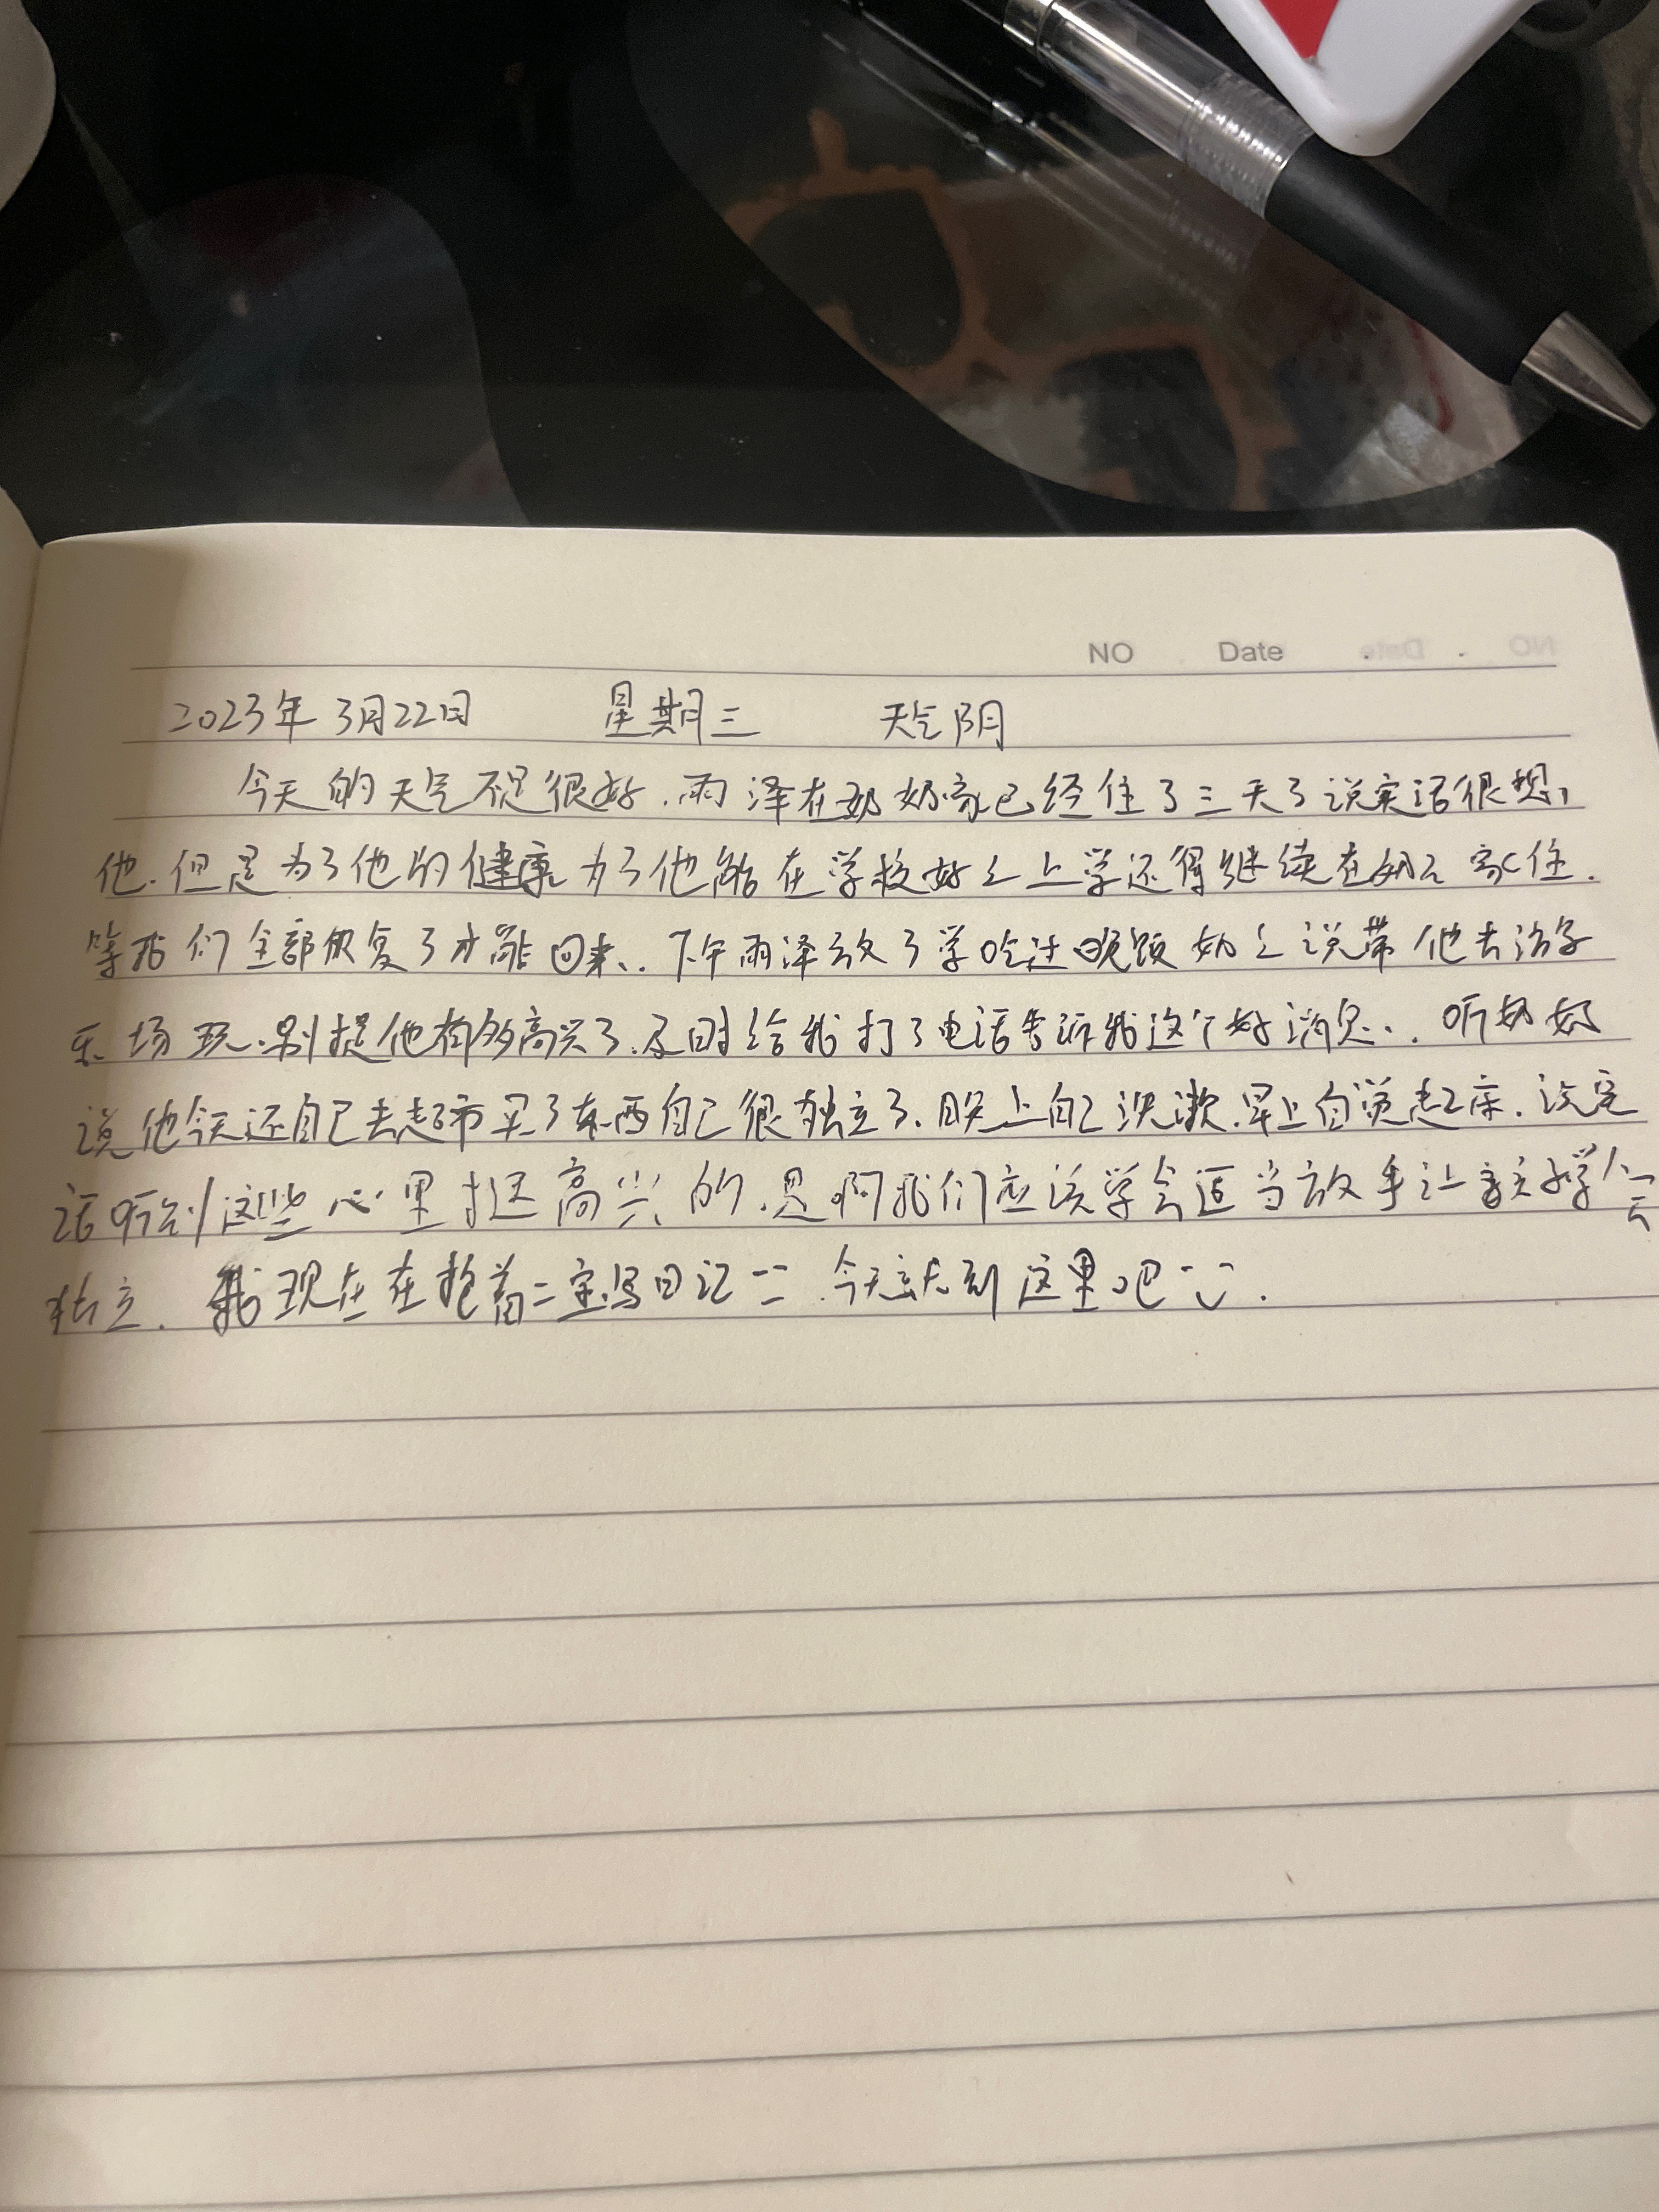 NO Date
2023年3月22日 星期三 天气阴
今天的天气不是很好.雨泽在奶奶家已经住了三天了说实话很想
他.但是为了他的健康为了他能在学校好好上学还得继续在奶奶家住.
等我们全部恢复了才能回来..下午雨泽放了学吃过晚饭奶奶说带他去游
乐场玩.别提他有多高兴了.及时给我打了电话告诉我这个好消息..听奶奶
说他今天还自己去超市买了东西自己很独立了.晚上自己洗漱.早上自觉起床.说实
话听到这些心里挺高兴的.是啊我们应该学会适当放手让孩子学会
独立.我现在在抱着二宝写日记 今天就到这里吧.